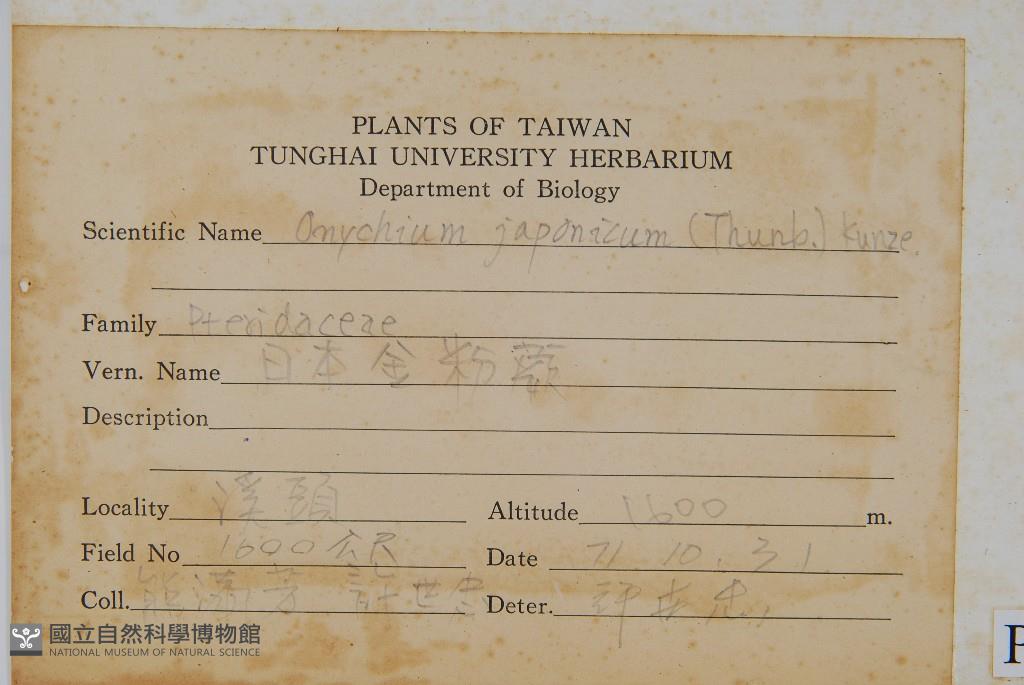 PLANTS OF TAIWAN
TUNGHAI UNIVERSITY HERBARIUM
Department of Biology
Scientific Name Onychium japonicum (Thunb.) Kunze.
Family Pteridaceae
Vern. Name 日本金粉蕨
Description
Locality 溪頭 Altitude 1600 m.
Field No 1600公尺 Date 71.10.31
Coll. 熊滿芳 許世忠 Deter. 許世忠
國立自然科學博物館
NATIONAL MUSEUM OF NATURAL SCIENCE
P